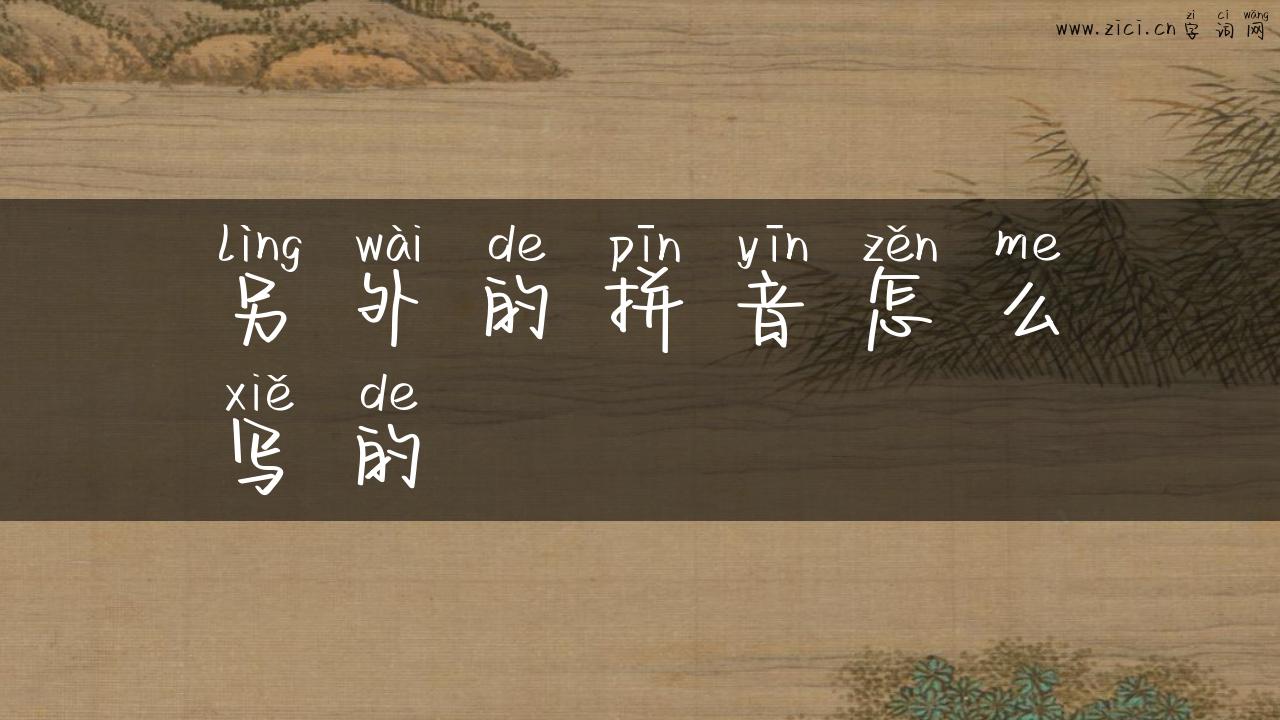 zì cí wǎng
www.zici.cn 字词网
lìng wài de pīn yīn zěn me
另外的拼音怎么
xiě de
写的